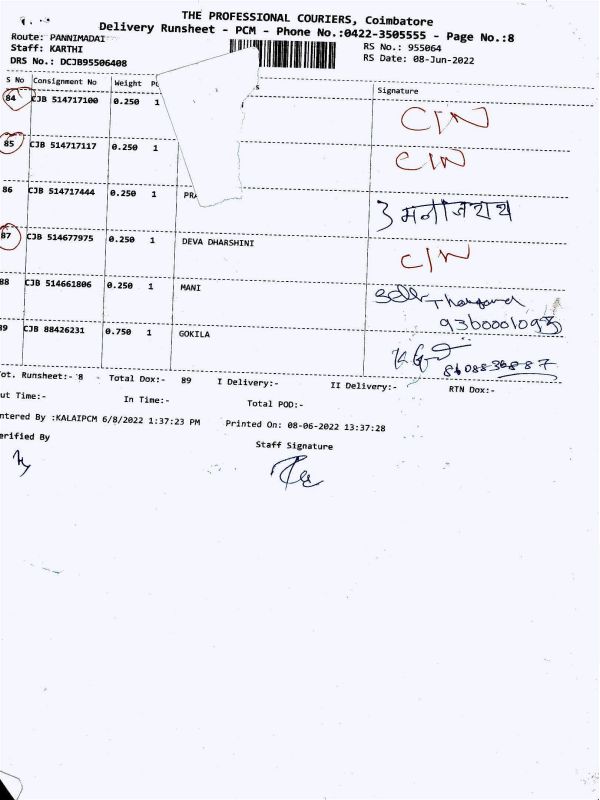 THE PROFESSIONAL COURIERS, Coimbatore
Delivery Runsheet - PCM - Phone No.:0422-3505555 - Page No.:8
Route: PANNIMADAI
Staff: KARTHI
DRS No.: DCJB95506408
RS No.: 955064
RS Date: 08-Jun-2022
S No Consignment No Weight Signature
84 CJB 514717100 0.250 1 C/N
85 CJB 514717117 0.250 1 C/N
86 CJB 514717444 0.250 1 PRA
87 CJB 514677975 0.250 1 DEVA DHARSHINI C/N
88 CJB 514661806 0.250 1 MANI
89 CJB 88426231 0.750 1 GOKILA
ot. Runsheet:- 8 - Total Dox:- 89 I Delivery:- II Delivery:- RTN Dox:-
ut Time:- In Time:- Total POD:-
ntered By :KALAIPCM 6/8/2022 1:37:23 PM Printed On: 08-06-2022 13:37:28
erified By Staff Signature